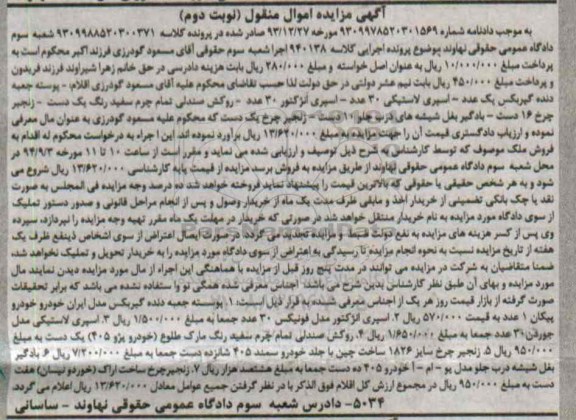 آگهی مزایده اموال منقول (نوبت دوم)
به موجب دادنامه شماره ۹۳۰۹۹۷۸۵۲۰۳۰۱۵۶۹ مورخه ۹۳/۱۲/۲۷ صادر شده در پرونده کلاسه ۹۳۰۹۹۸۸۵۲۰۳۰۰۳۷۱ شعبه سوم
دادگاه عمومی حقوقی نهاوند موضوع پرونده اجرایی کلاسه ۹۴۰۱۳۸ اجرا شعبه سوم حقوقی آقای مسعود گودرزی فرزند اکبر محکوم است به
پرداخت مبلغ ۱۰/۰۰۰/۰۰۰ ریال به عنوان اصل خواسته و مبلغ ۲۸۰/۰۰۰ ریال بابت هزینه دادرسی در حق خانم زهرا شیراوند فرزند فریدون
و پرداخت مبلغ ۴۵۰/۰۰۰ ریال بابت نیم عشر دولتی در حق دولت لذا حسب تقاضای محکوم علیه آقای مسعود گودرزی اقلام - پوسته جعبه
دنده گیربکس یک عدد - اسپری لاستیکی ۳۰ عدد - اسپری انژکتور ۳۰ عدد - روکش صندلی تمام چرم سفید رنگ یک دست - زنجیر
چرخ ۱۶ دست - بادگیر بغل شیشه های درب جلو ۱۰ دست - زنجیر چرخ یک دست که محکوم علیه مسعود گودرزی به عنوان مال معرفی
نموده و ارزیاب دادگستری قیمت آن را جهت مزایده به مبلغ ۱۳/۶۲۰/۰۰۰ ریال برآورد نموده اند. این اجراء به درخواست محکوم له اقدام به
فروش ملک موصوف که توسط کارشناس به شرح ذیل توصیف و ارزیابی شده می نماید و مقرر است از ساعت ۱۰ تا ۱۱ مورخه ۹۴/۹/۳ در
محل شعبه سوم دادگاه عمومی حقوقی نهاوند از طریق مزایده به فروش برسد مزایده از قیمت پایه کارشناسی ۱۳/۶۲۰/۰۰۰ ریال شروع می
شود و به هر شخص حقیقی یا حقوقی که بالاترین قیمت را پیشنهاد نماید فروخته خواهد شد ده درصد وجه مزایده فی المجلس به صورت
نقد یا چک بانکی تضمینی از خریدار اخذ و مابقی ظرف مدت یک ماه از خریدار وصول و پس از انجام مراحل قانونی و صدور دستور تملیک
از سوی دادگاه مورد مزایده به نام خریدار منتقل خواهد شد در صورتی که خریدار در مهلت یک ماه مقرر تهیه وجه مزایده را نپردازد، سپرده
وی پس از کسر هزینه های مزایده به نفع دولت ضبط و مزایده تجدید می گردد. در صورت ایصال اعتراض از سوی اشخاص ذینفع ظرف یک
هفته از تاریخ مزایده نسبت به نحوه انجام مزایده تا رسیدگی به اعتراض از سوی دادگاه مورد مزایده را به خریدار تحویل و تملیک نخواهد شد،
ضمنا متقاضیان به شرکت در مزایده می توانند در مدت پنج روز قبل از مزایده با هماهنگی این اجراء از مال مورد مزایده دیدن نمایند مال
مورد مزایده و بهای آن طبق نظر کارشناس بدین شرح می باشد: اجناس معرفی شده همگی نو و استفاده نشده می باشد که برابر تحقیقات
صورت گرفته از بازار قیمت روز هر یک از اجناس معرفی شده به قرار ذیل است: ۱. پوسته جعبه دنده گیربکس مدل ایران خودرو خودرو
پیکان ۱ عدد به قیمت ۵۷۰/۰۰۰ ریال ۲. اسپری انژکتور مدل فونیکس ۳۰ عدد جمعا به مبلغ ۱/۵۰۰/۰۰۰ ریال ۳. اسپری لاستیکی مدل
جوردن ۳۰ عدد جمعا به مبلغ ۱/۶۵۰/۰۰۰ ریال ۴. روکش صندلی تمام چرم سفید رنگ مارک طلوع (خودرو پژو ۴۰۵) یک دست به مبلغ
۹۵۰/۰۰۰ ریال ۵. زنجیر چرخ سایز ۱۸۲۶ ساخت چین با جلد خودرو سمند ۴۰۵ شانزده دست جمعا به مبلغ ۷/۲۰۰/۰۰۰ ریال ۶. بادگیر
بغل شیشه درب جلو مدل یو - ام - آ خودرو ۴۰۵ ده دست جمعا به مبلغ هشتصد هزار ریال ۷. زنجیرچرخ ساخت اراک (خوردو نیسان) هفت
دست به مبلغ ۹۵۰/۰۰۰ ریال در مجموع ارزش کل اقلام فوق الذکر با در نظر گرفتن جمیع عوامل معادل ۱۳/۶۲۰/۰۰۰ ریال اعلام می گردد.
۵۰۳۴- دادرس شعبه سوم دادگاه عمومی حقوقی نهاوند - ساسانی